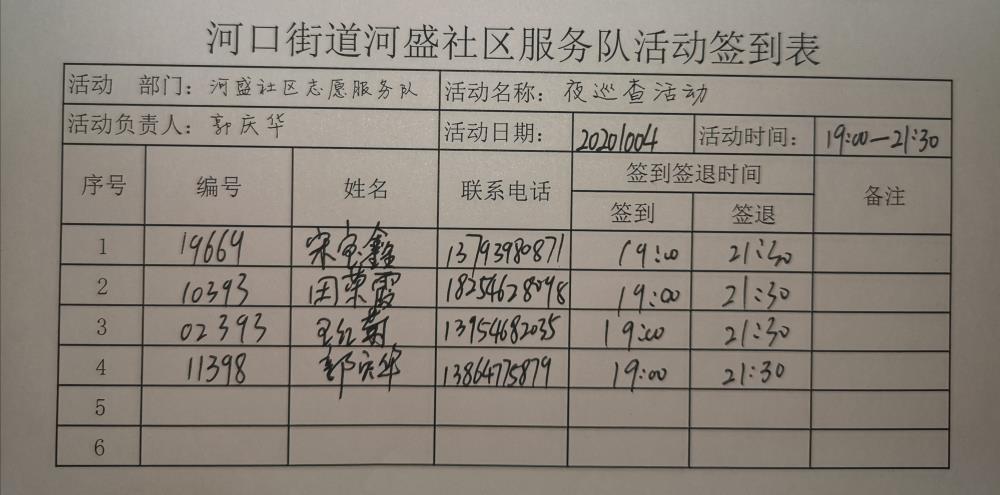 河口街道河盛社区服务队活动签到表
活动 部门：河盛社区志愿服务队 活动名称：夜巡查活动
活动负责人：郭庆华 活动日期：20201004 活动时间：19:00—21:30
序号 编号 姓名 联系电话 签到签退时间 备注
签到 签退
1 19669 宋宝鑫 13793980871 19:00 21:30
2 10393 田荣霞 18254628098 19:00 21:30
3 02393 王红菊 13954682035 19:00 21:30
4 11398 郭庆华 13864775879 19:00 21:30
5
6